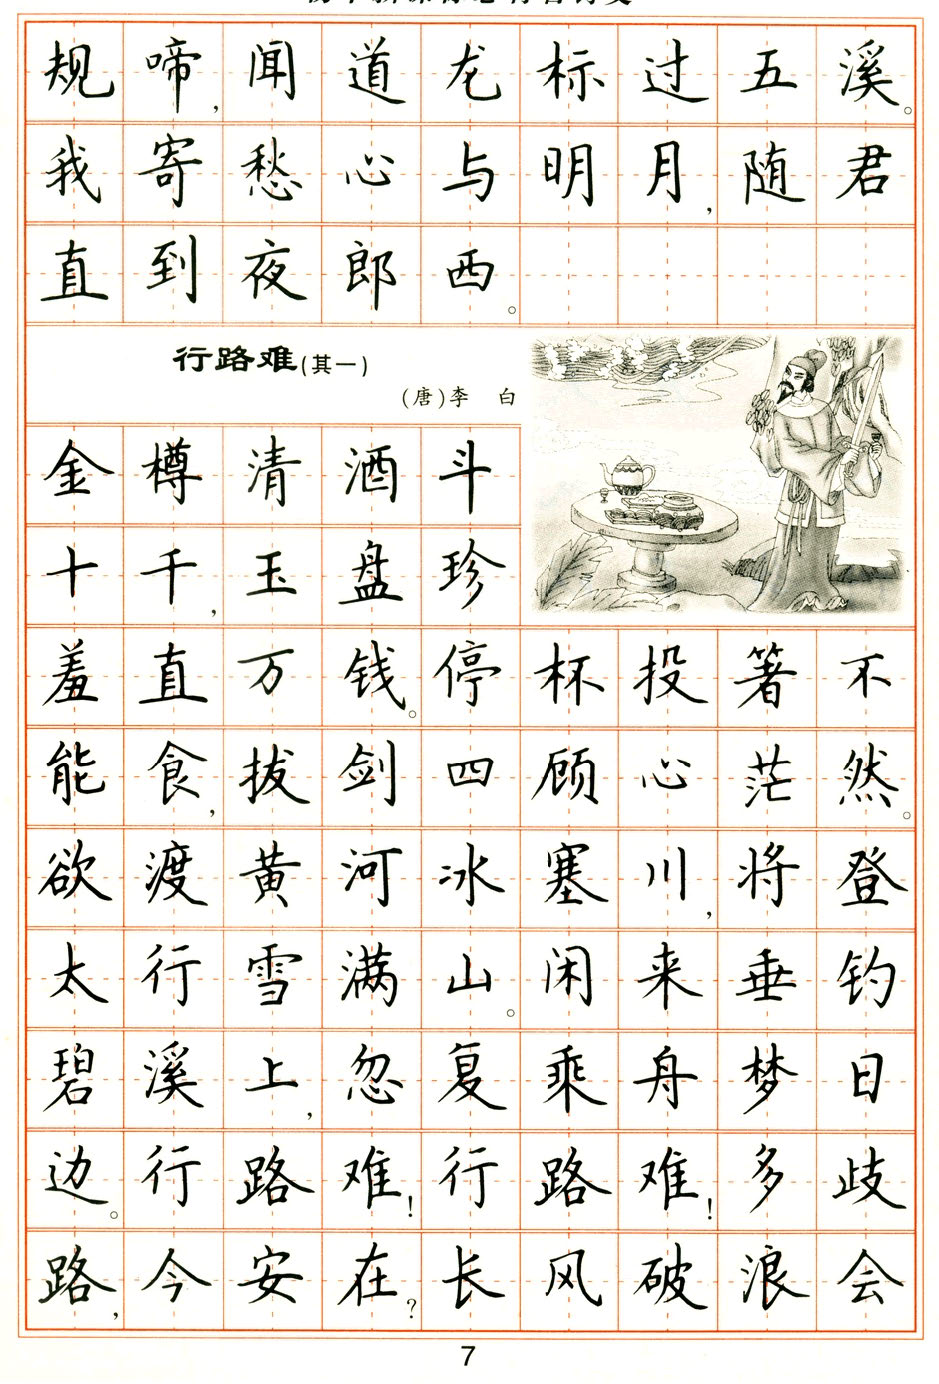 规啼,闻道龙标过五溪。
我寄愁心与明月,随君
直到夜郎西。
行路难(其一)
(唐)李 白
金樽清酒斗
十千,玉盘珍
羞直万钱。停杯投箸不
能食,拔剑四顾心茫然。
欲渡黄河冰塞川,将登
太行雪满山。闲来垂钓
碧溪上,忽复乘舟梦日
边。行路难!行路难!多歧
路,今安在?长风破浪会
7